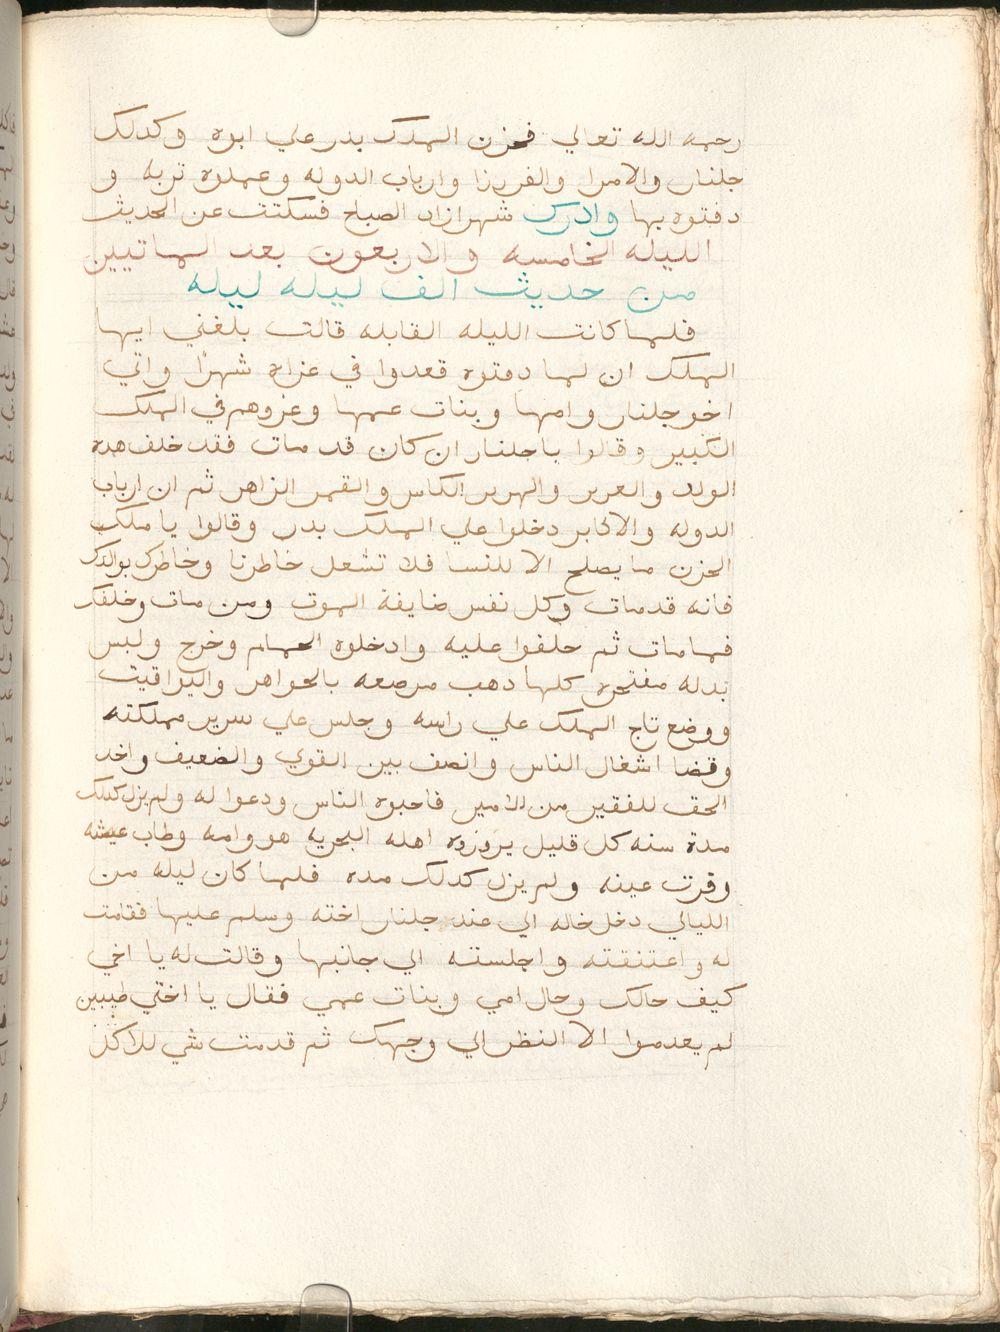 رحمه الله تعالي فحزن الملك بدر علي ابوه وكدلك
جلنار والامرا والفوزرا وارباب الدوله وعملوه تربه و
دفنوه بها وادرك شهرازاد الصباح فسكتت عن الحديث
الليله الخامسه والاربعون بعد الماتيين
من حديث الف ليله ليله
فلما كانت الليله القابله قالت بلغني ايها
الملك ان لما دفنوه قعدوا في عزاه شهرًا واتي
اخو جلنار وامها وبنات عمها وعزوهم في الملك
الكبير وقالوا يا جلنار ان كان قد مات فقد خلف هده
الولد والعرير والهرير الكاس والقمر الزاهر ثم ان ارباب
الدوله والاكابر دخلوا علي الملك بدر وقالوا يا ملك
الحزن ما يصلح الا للنسا فلا تشعل خاطرنا وخاطرك بوالدك
فانه قد مات وكل نفس ضايفة الموت ومن مات وخلفك
فما مات ثم حلفوا عليه وادخلوه الحمام وخرج ولبس
بدله مفتخره كلها دهب مرصعه بالجواهر واليواقيت
ووضع تاج الملك علي راسه وجلس علي سرير مملكته
وقضا اشغال الناس وانصف بين القوي والضعيف واخد
الحق للفقير من الامير فاحبوه الناس ودعوا له ولم يزل كدلك
مدة سنه كل قليل يزوروه اهله البحريه هو وامه وطاب عيشه
وقرت عينه ولم يزل كدلك مده فلما كان ليله من
الليالي دخل خاله الي عند جلنار اخته وسلم عليها فقامت
له واعتنقته واجلسته الي جانبها وقالت له يا اخي
كيف حالك وحال امي وبنات عمي فقال يا اختي طيبين
لم يعدموا الا النظر الي وجهك ثم قدمت شي للاكل